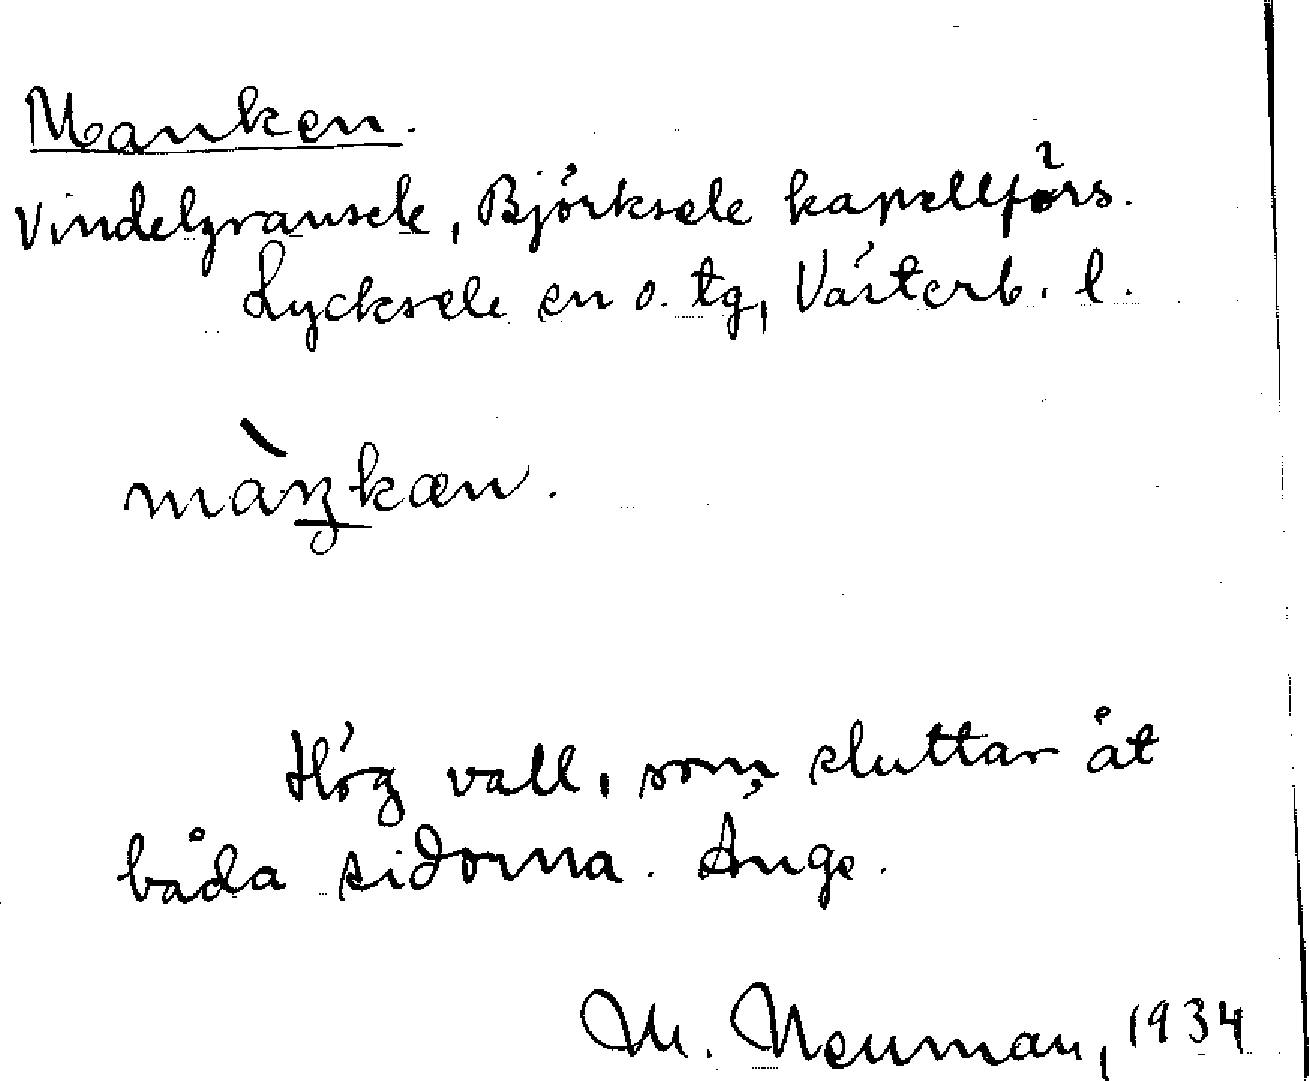 Manken.
Vindelgransele, Björksele kapellförs.
Lycksele en o. tg, Västerb. l.
màŋkæn.
Hög vall, som sluttar åt
båda sidorna. Änge.
M. Neuman, 1934